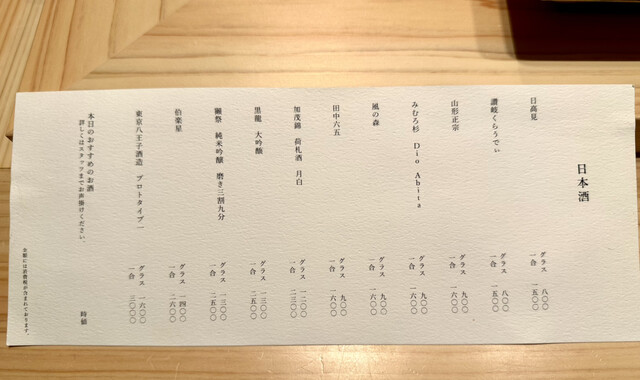 日本酒
日高見
グラス 八〇〇
一合 一五〇〇
讃岐くらうでぃ
グラス 八〇〇
一合 一五〇〇
山形正宗
グラス 九〇〇
一合 一六〇〇
みむろ杉 Dio Abita
グラス 九〇〇
一合 一六〇〇
風の森
グラス 九〇〇
一合 一六〇〇
田中六五
グラス 九〇〇
一合 一六〇〇
加茂錦 荷札酒 月白
グラス 一二〇〇
一合 二三〇〇
黒龍 大吟醸
グラス 一三〇〇
一合 二五〇〇
獺祭 純米吟醸 磨き三割九分
グラス 一三〇〇
一合 二五〇〇
伯楽星
グラス 一四〇〇
一合 二六〇〇
東京八王子酒造 プロトタイプ一
グラス 一六〇〇
一合 三〇〇〇
本日のおすすめのお酒 時価
詳しくはスタッフまでお声掛けください。
金額には消費税が含まれております。